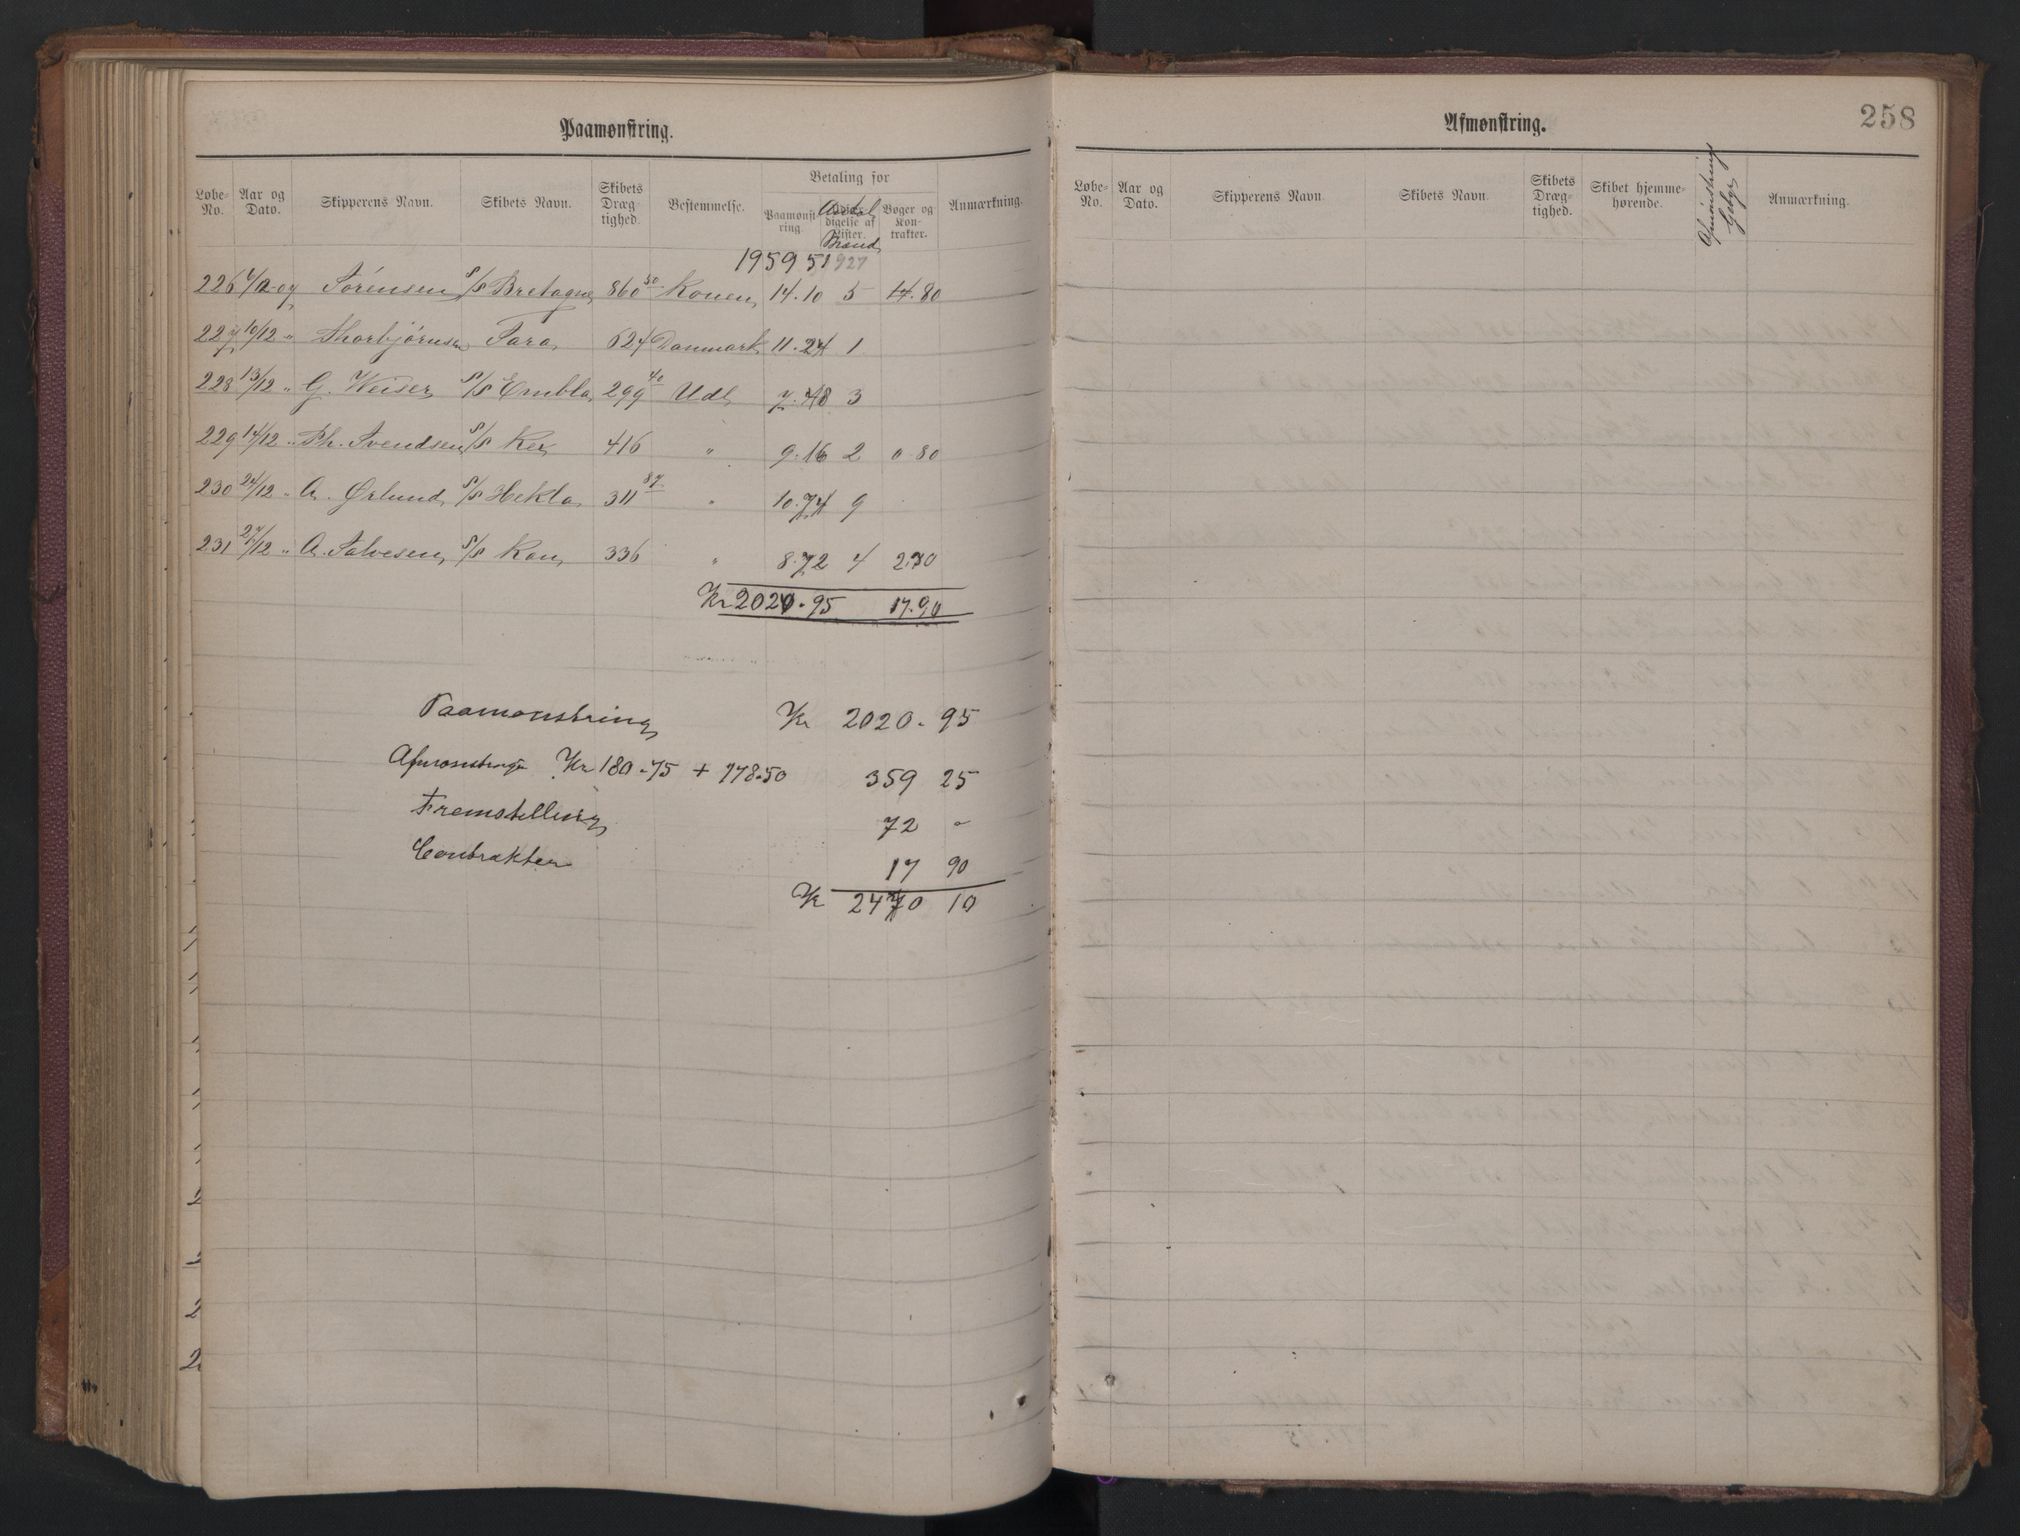 Paamønstring.
Løbe-No. Aar og Dato. Skipperens Navn. Skibets Navn. Skibets Dræg-tighed. Bestemmelse. Betaling for Paamønst-ring. digelse af Lister. Bøger og Kon-trakter. Anmærkning.
Antal Mænd
1959 51 927
226 6/12 07 Sørensen S/S Bretagne 860 50 Rouen 14.10 5 14.80
227 10/12 " Thorbjørnsen Fara 624 Danmark 11.24 1
228 13/12 " G. Weiser S/S Embla 299 40 Udl 7.48 3
229 14/12 " Ph. Svendsen S/S Ker 416 " 9.16 2 0 80
230 24/12 " A. Ørlund S/S Hekla 311 87 " 10.74 9
231 27/12 " A. Salvesen S/S Kan 336 " 8.72 4 2.30
Kr 2020.95 17.90
Paamønstring Kr 2020.95
Afmønstringer Kr 180.75 + 178.50 359 25
Fremstilling 72 -
Contrakter 17 90
Kr 2470 10
Afmønstring. 258
Løbe-No. Aar og Dato. Skipperens Navn. Skibets Navn. Skibets Dræg-tighed. Skibet hjemme-hørende. Afmønstrings Gebyr Anmærkning.